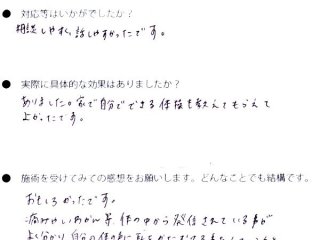 ● 対応等はいかがでしたか？
相談しやすく、話しやすかったです。
● 実際に具体的な効果はありましたか？
ありました。家で自分でできる体操を教えてもらえて
よかったです。
● 施術を受けてみての感想をお願いします。どんなことでも結構です。
おもしろかったです。
痛みやいわかん等 体の中から発信されている事が
よく分かり 自分の体の声に